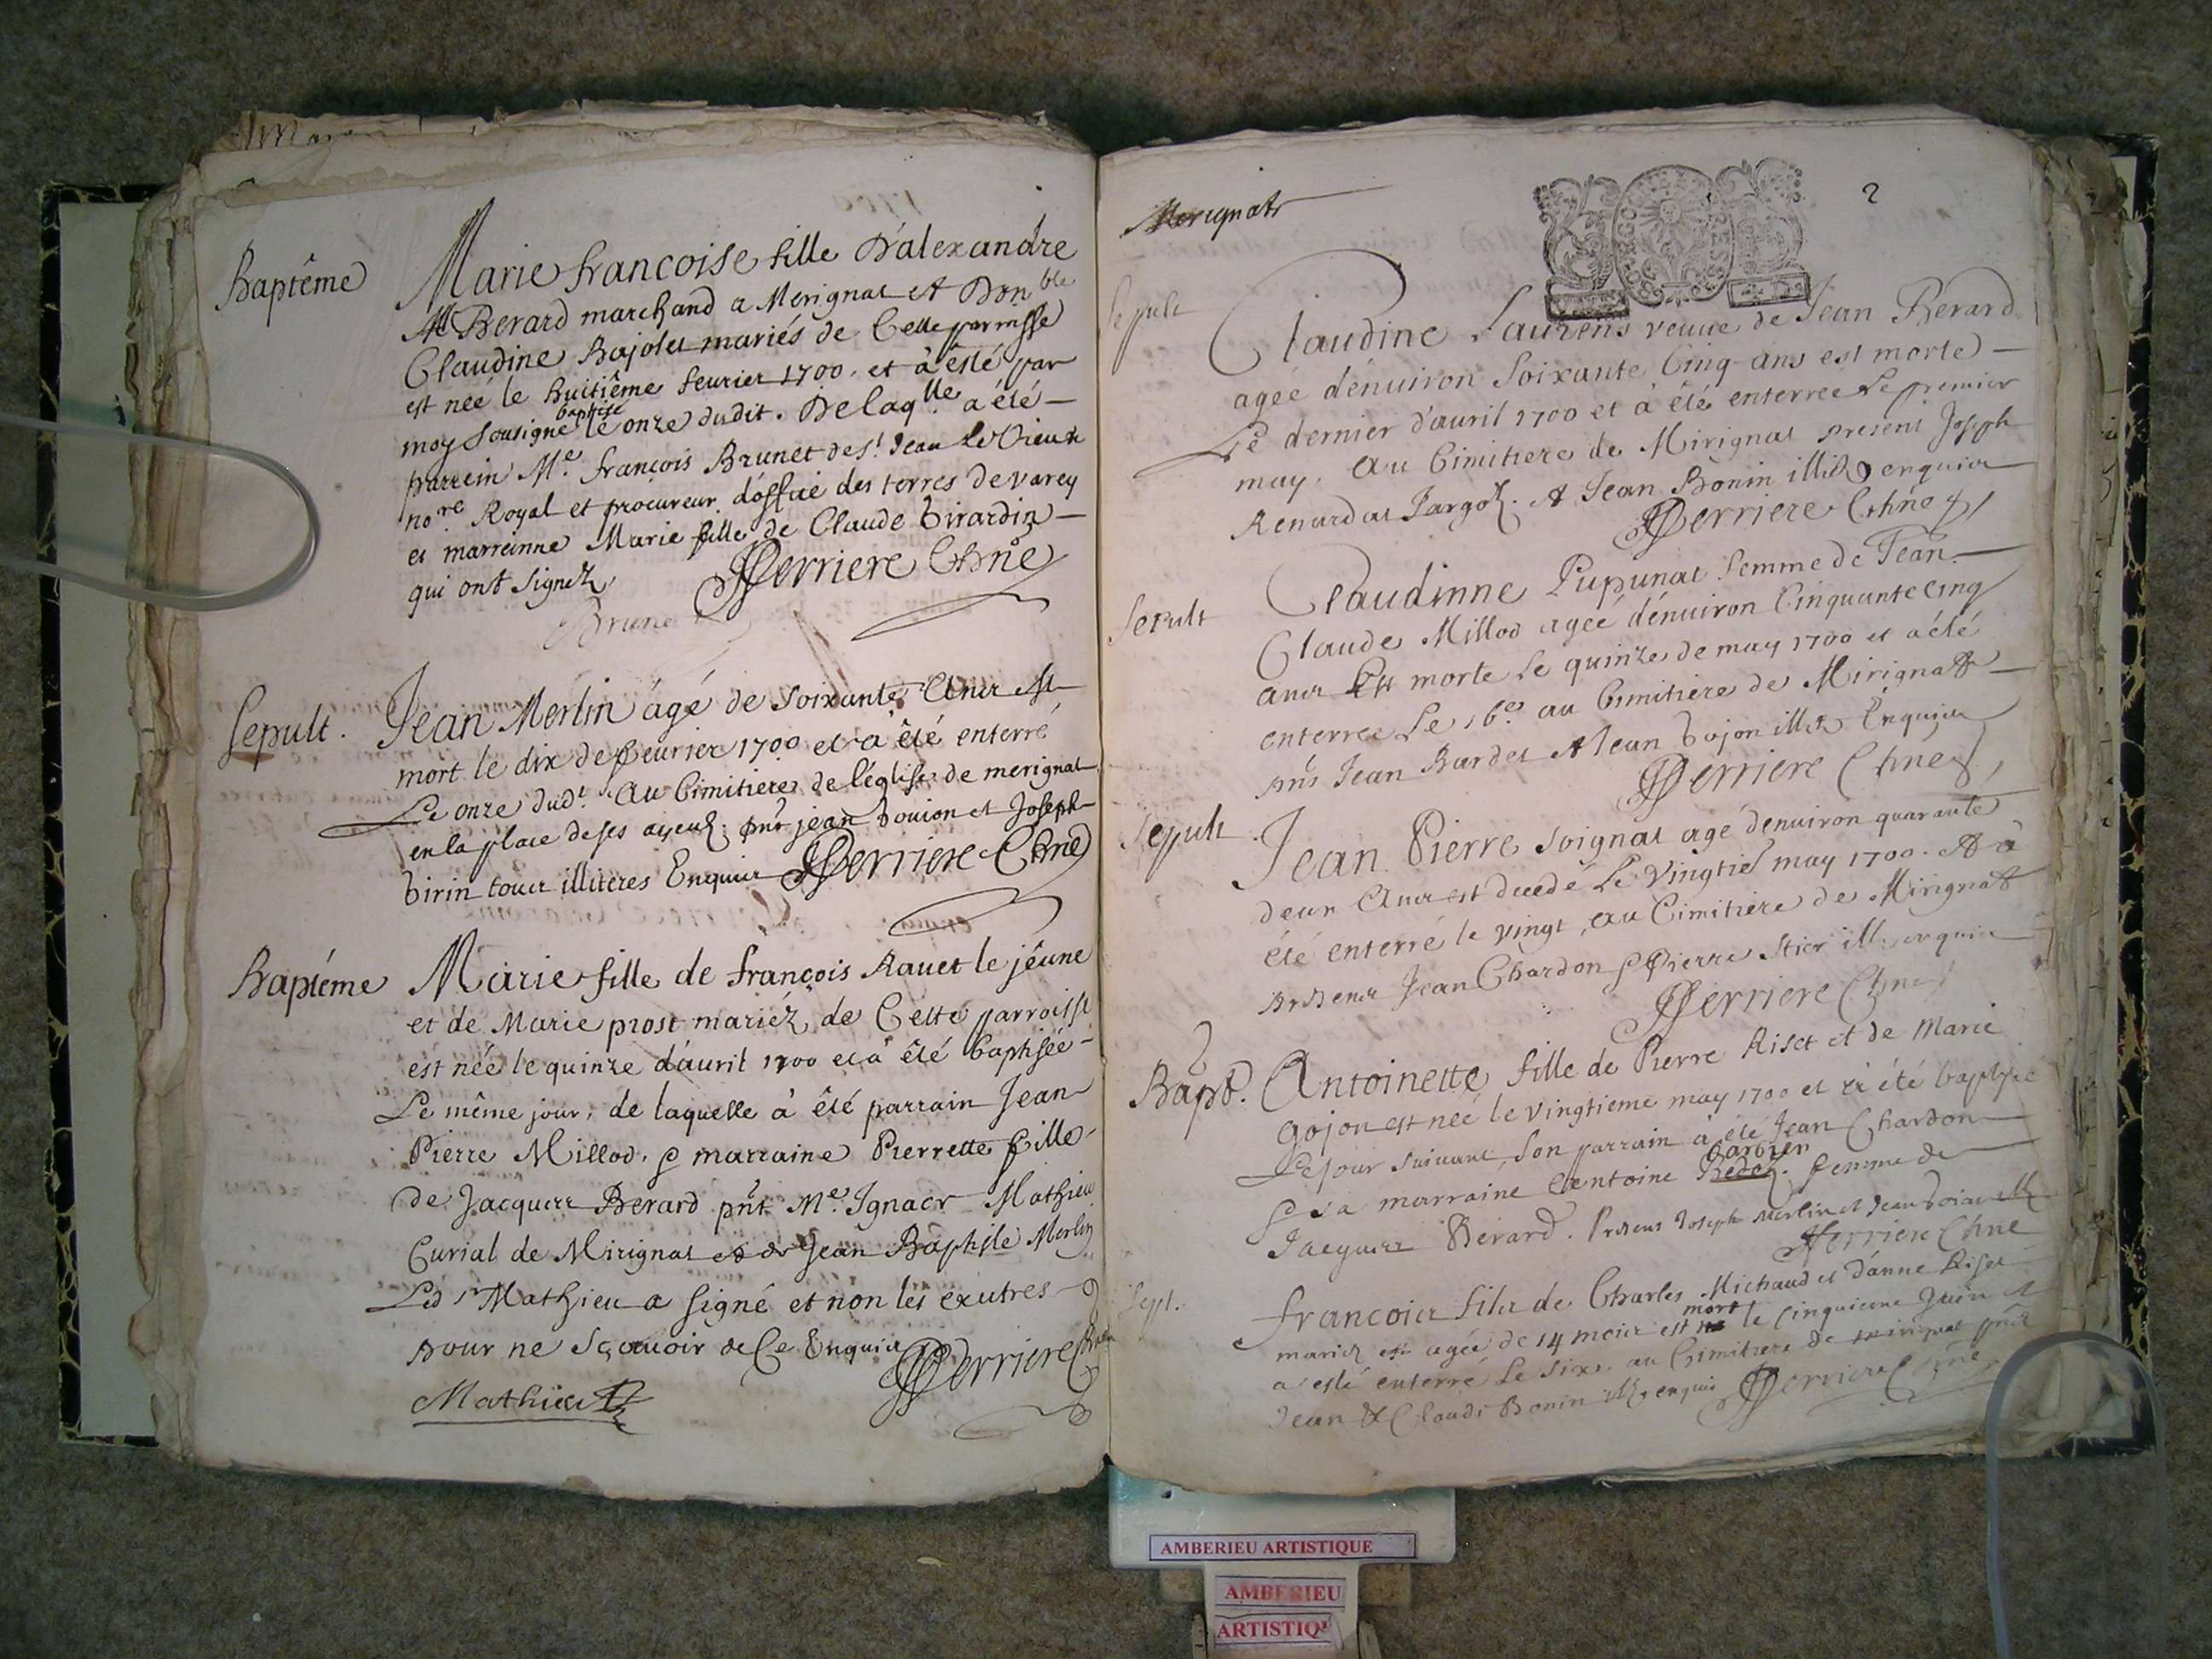 Baptême
Marie francoise fille D'alexandre
Berard marchand a Merignat et Don ble
Claudine Bajolet mariés de Cette parroisse
est neé le huitiême feurier 1700. et à esté par
moy sousigné baptisé le onze dudit. De laq.lle a été
parrein M.e françois Brunet des.t Jean Le Vieux
no.re Royal et procureur d'office des terres de varey
et marreinne Marie fille de Claude Girardin
qui ont signéz
Perriere
Brune
Sepult.
Jean Merlin âgé de soixante est
mort le dix de feurier 1700 et à êté enterré
Le onze dud.t Au Cimitiere de l'église de merignat
en la place de ses ayeuls. jean Goujon et Joseph
illiteres Enquis Perriere
Baptéme
Marie fille de françois Rauet le jêune
et de Marie prost mariéz de Cette parroisse
est neé le quinze d'auril 1700 et à êté baptisée
Le même jour, de laquelle à êté parrain Jean
Pierre Millod. & marraine Pierrette fille
de Jacques Berard pñt M.e Ignace Mathieu
Curial de Mirignat et Jean Baptiste Merlin
Led s.r Mathieu a signé et non les autres
pour ne sçauoir de Ce Enquis Perriere
Mathieu
Merignat
2
Sepult
Claudine Laurens veuue de Jean Berard
ageé d'énuiron soixante Cinq ans est morte
Le dernier d'auril 1700 et à été enterreé Le premier
may. Au Cimitiere de Mirignat present Joseph
Renardat Jean Bonin enquis
Perriere
Sepult
Claudinne Pupunat femme de Jean
Claude Millod ageé d'énuiron Cinquante cinq
est morte Le quinze de may 1700 et à été
enterreé Le 16.e au Cimitiere de Mirignat
Jean Bardet et Jean Gojon Enquis
Perriere
Sepult
Jean Pierre Soignat agé d'enuiron quarante
deux est decedé Le Vingtie may 1700. et à
été enterré le vingt, au Cimitiere de Mirignat
Jean Chardon & Pierre enquis
Perriere
Bapt.
Antoinette fille de Pierre Riset et de Marie
Gojon est neé le vingtieme may 1700 et à été baptisé
Le jour suiuant, son parrain à été Jean Chardon
& sa marraine femme de
Jacques Berard. Joseph Merlin et Jean
Perriere
Sept.
francois fils de Charles Michaud et d'Anne Riset
mariéz agée de 14 mois est mort le cinquieme Juin et
a esté enterré Le six. au Cimitiere de mirignat
Jean & Claude Bonin enquis Perriere
AMBERIEU ARTISTIQUE
AMBERIEU
ARTISTIQU